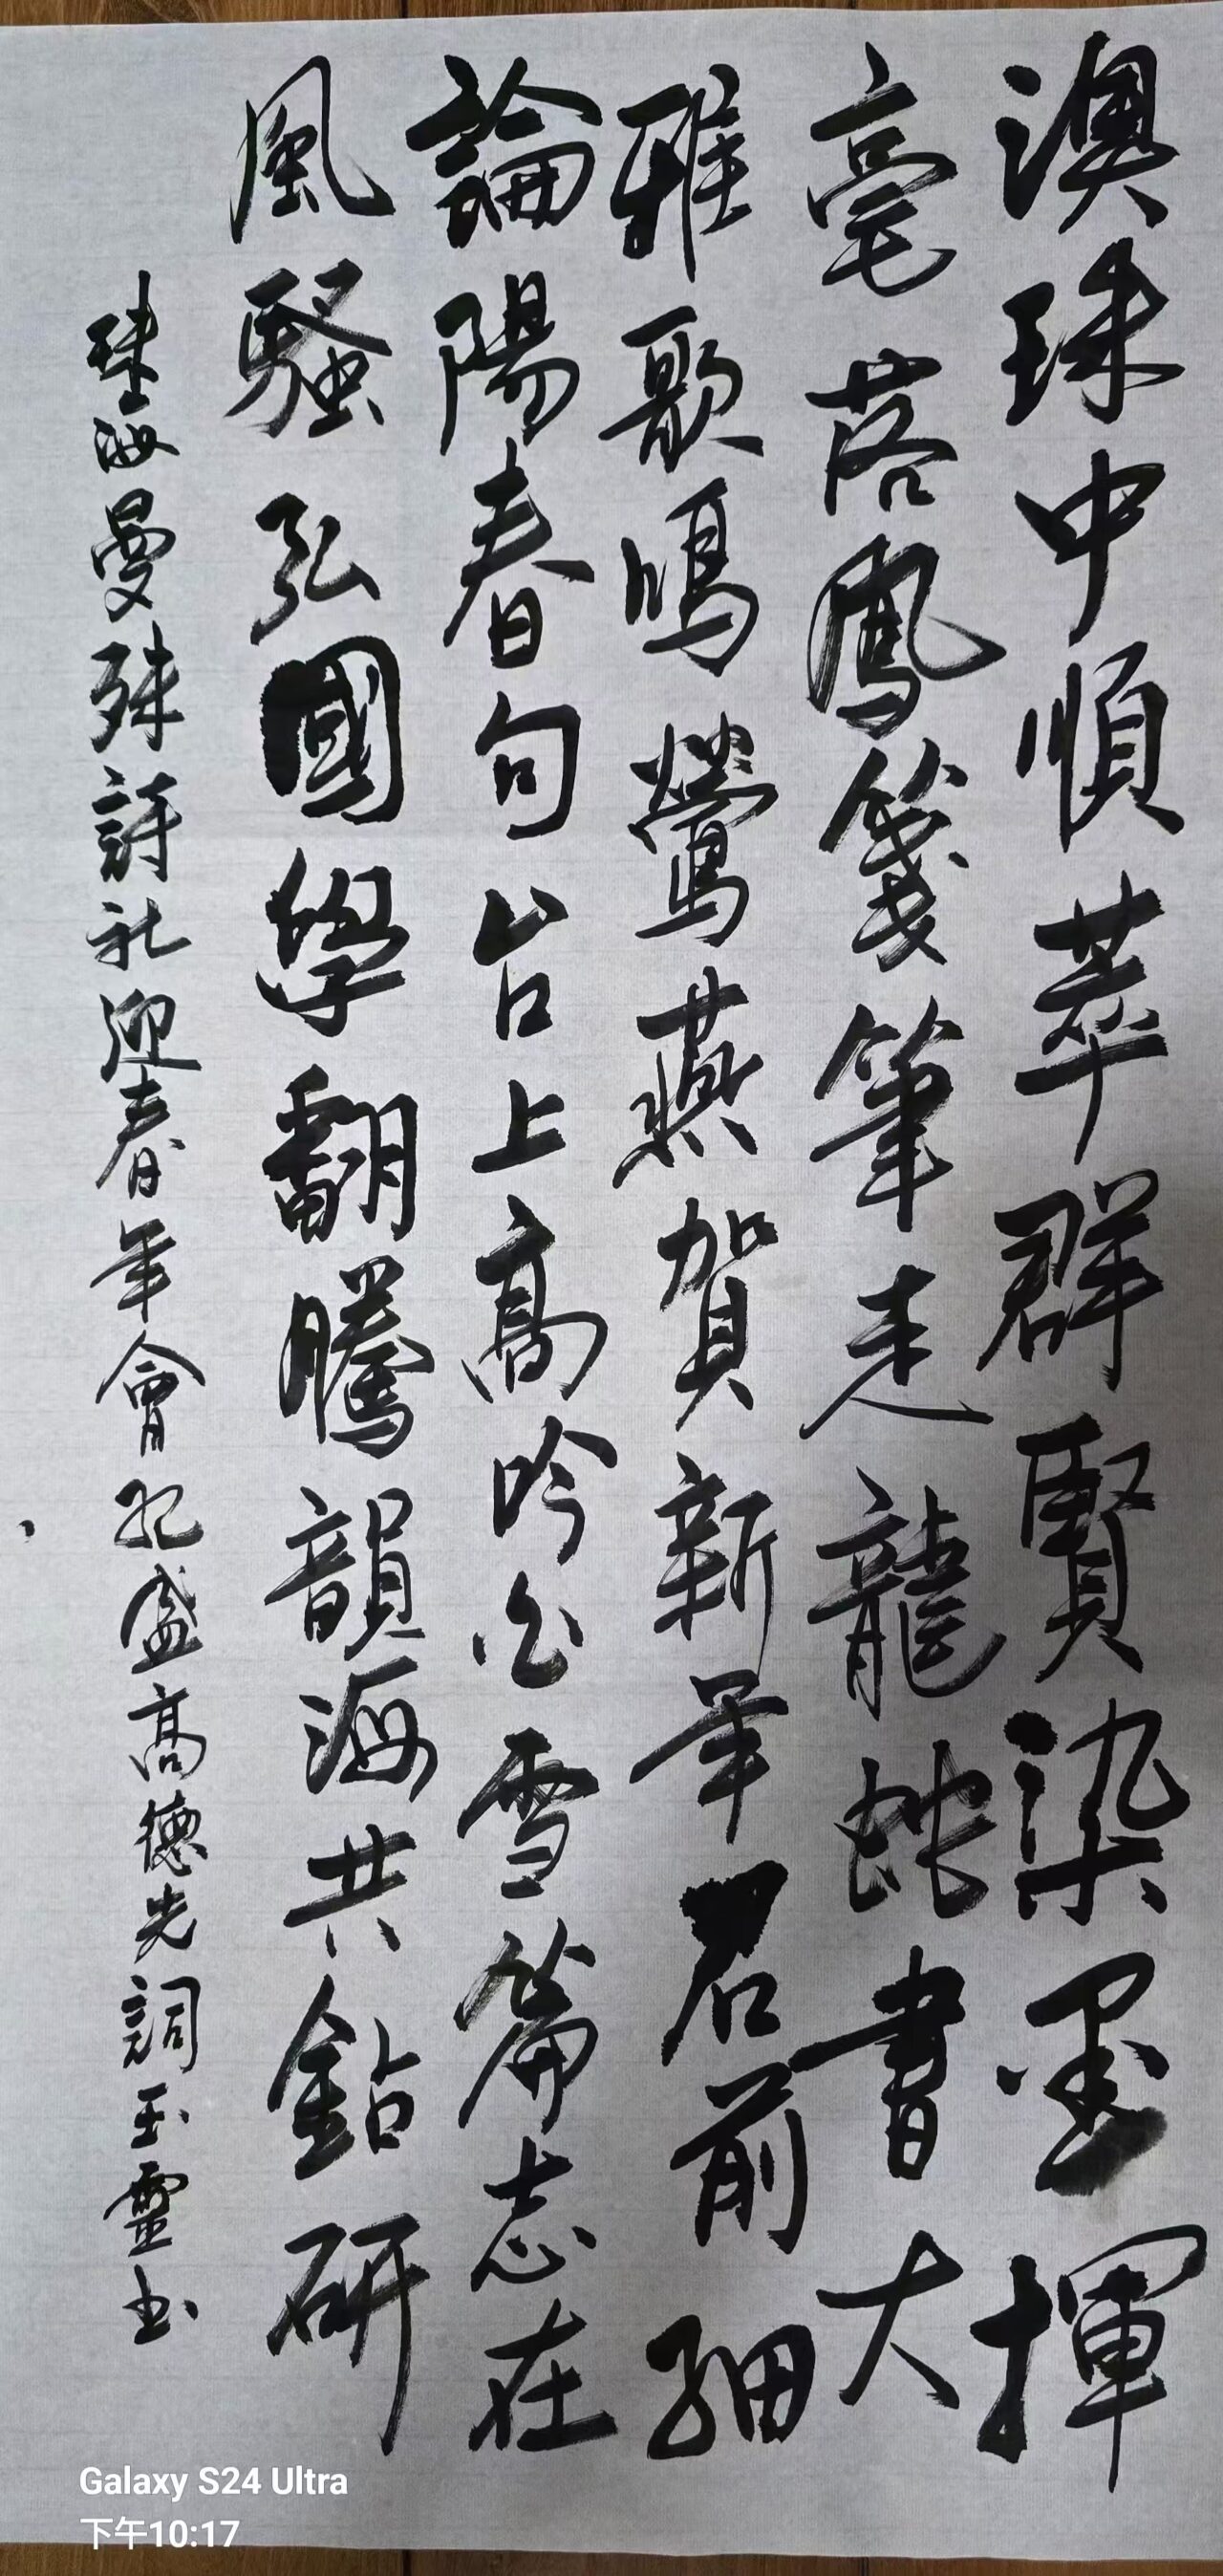 澳珠中順萃群賢染墨揮
毫落鳳箋筆走龍蛇書大
雅歌鳴鶯燕賀新年君前細
論陽春句台上高吟白雪篇志在
風騷弘國學翻騰韻海共鈷研
珠海曼殊詩社迎春年會紀盛高德先詞玉靈书
Galaxy S24 Ultra
下午10:17